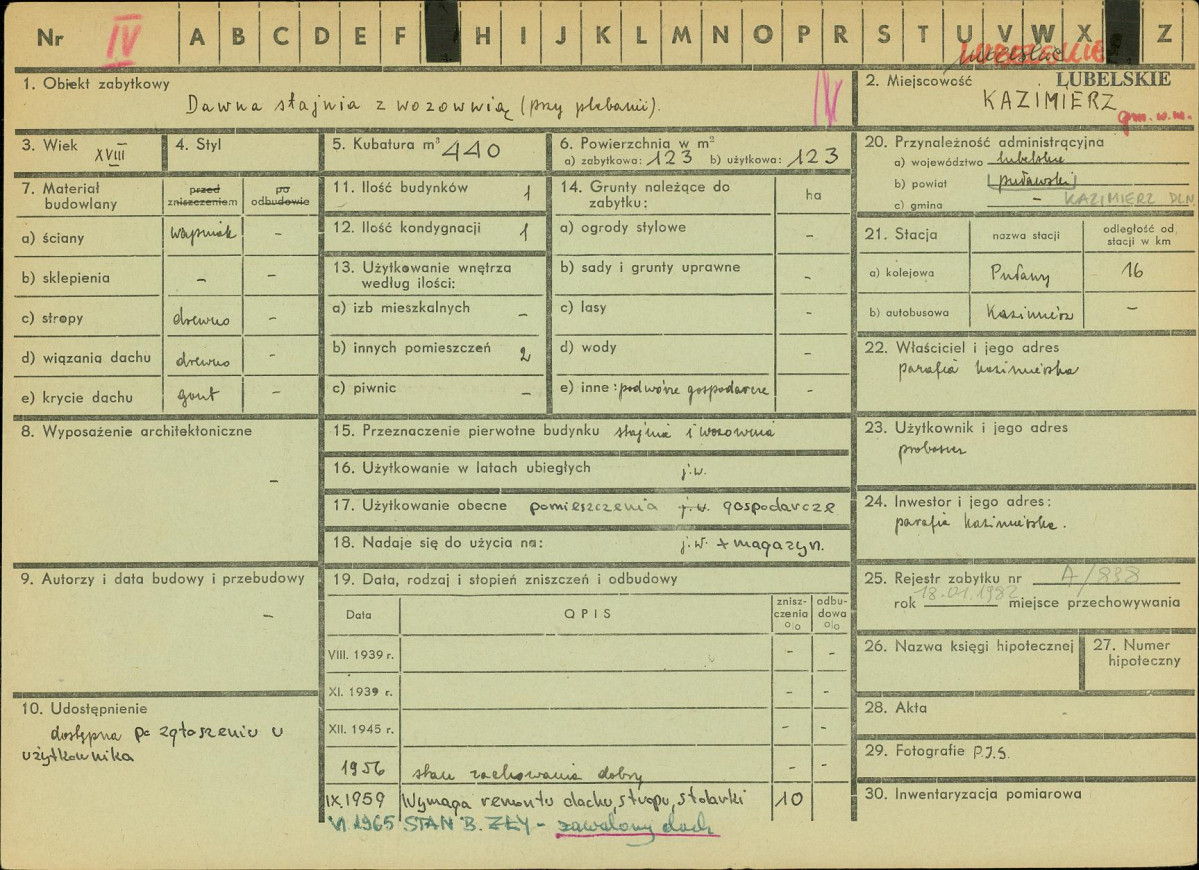 Nr IV A B C D E F H I J K L M N O P R S T U V W X Z
LUBELSKIE
1. Obiekt zabytkowy
Dawna stajnia z wozownią (przy plebanii).
IV
2. Miejscowość LUBELSKIE
KAZIMIERZ
gm. w.m.
3. Wiek XVIII
4. Styl
5. Kubatura m³ 440
6. Powierzchnia w m²
a) zabytkowa: 123 b) użytkowa: 123
7. Materiał budowlany
przed zniszczeniem
po odbudowie
a) ściany wapniak -
b) sklepienia -
c) stropy drewno -
d) wiązania dachu drewno -
e) krycie dachu gont -
8. Wyposażenie architektoniczne
-
9. Autorzy i data budowy i przebudowy
-
10. Udostępnienie
dostępna po zgłoszeniu u
użytkownika
11. Ilość budynków 1
12. Ilość kondygnacji 1
13. Użytkowanie wnętrza
według ilości:
a) izb mieszkalnych -
b) innych pomieszczeń 2
c) piwnic -
14. Grunty należące do
zabytku: ha
a) ogrody stylowe -
b) sady i grunty uprawne -
c) lasy -
d) wody -
e) inne: podwórze gospodarcze -
15. Przeznaczenie pierwotne budynku stajnia i wozownia
16. Użytkowanie w latach ubiegłych j.w.
17. Użytkowanie obecne pomieszczenia j.w. gospodarcze
18. Nadaje się do użycia na: j.w. + magazyn.
19. Data, rodzaj i stopień zniszczeń i odbudowy
Data OPIS zniszczenia % odbudowa %
VIII. 1939 r. - -
XI. 1939 r. - -
XII. 1945 r. - -
1956 stan zachowania dobry - -
IX.1959 Wymaga remontu dachu, stropu, stolarki 10
VI 1965 STAN B. ZŁY - zawalony dach
20. Przynależność administrącyjna
a) województwo lubelskie
b) powiat puławski
c) gmina - KAZIMIERZ DLN
21. Stacja nazwa stacji odległość od
stacji w km
a) kolejowa Puławy 16
b) autobusowa Kazimierz -
22. Właściciel i jego adres
parafia kazimierska
23. Użytkownik i jego adres
proboszcz
24. Inwestor i jego adres:
parafia kazimierska.
25. Rejestr zabytku nr A/838
rok 18.01.1982 miejsce przechowywania
26. Nazwa księgi hipotecznej
27. Numer
hipoteczny
28. Akta
-
29. Fotografie P.I.S.
30. Inwentaryzacja pomiarowa